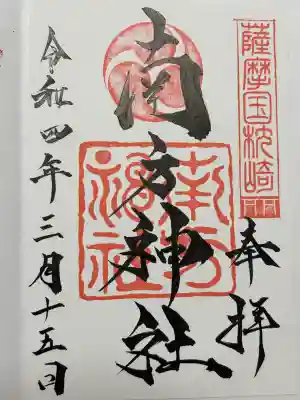 薩摩国枕崎
奉拝
南方神社
南方神社
令和四年三月十五日